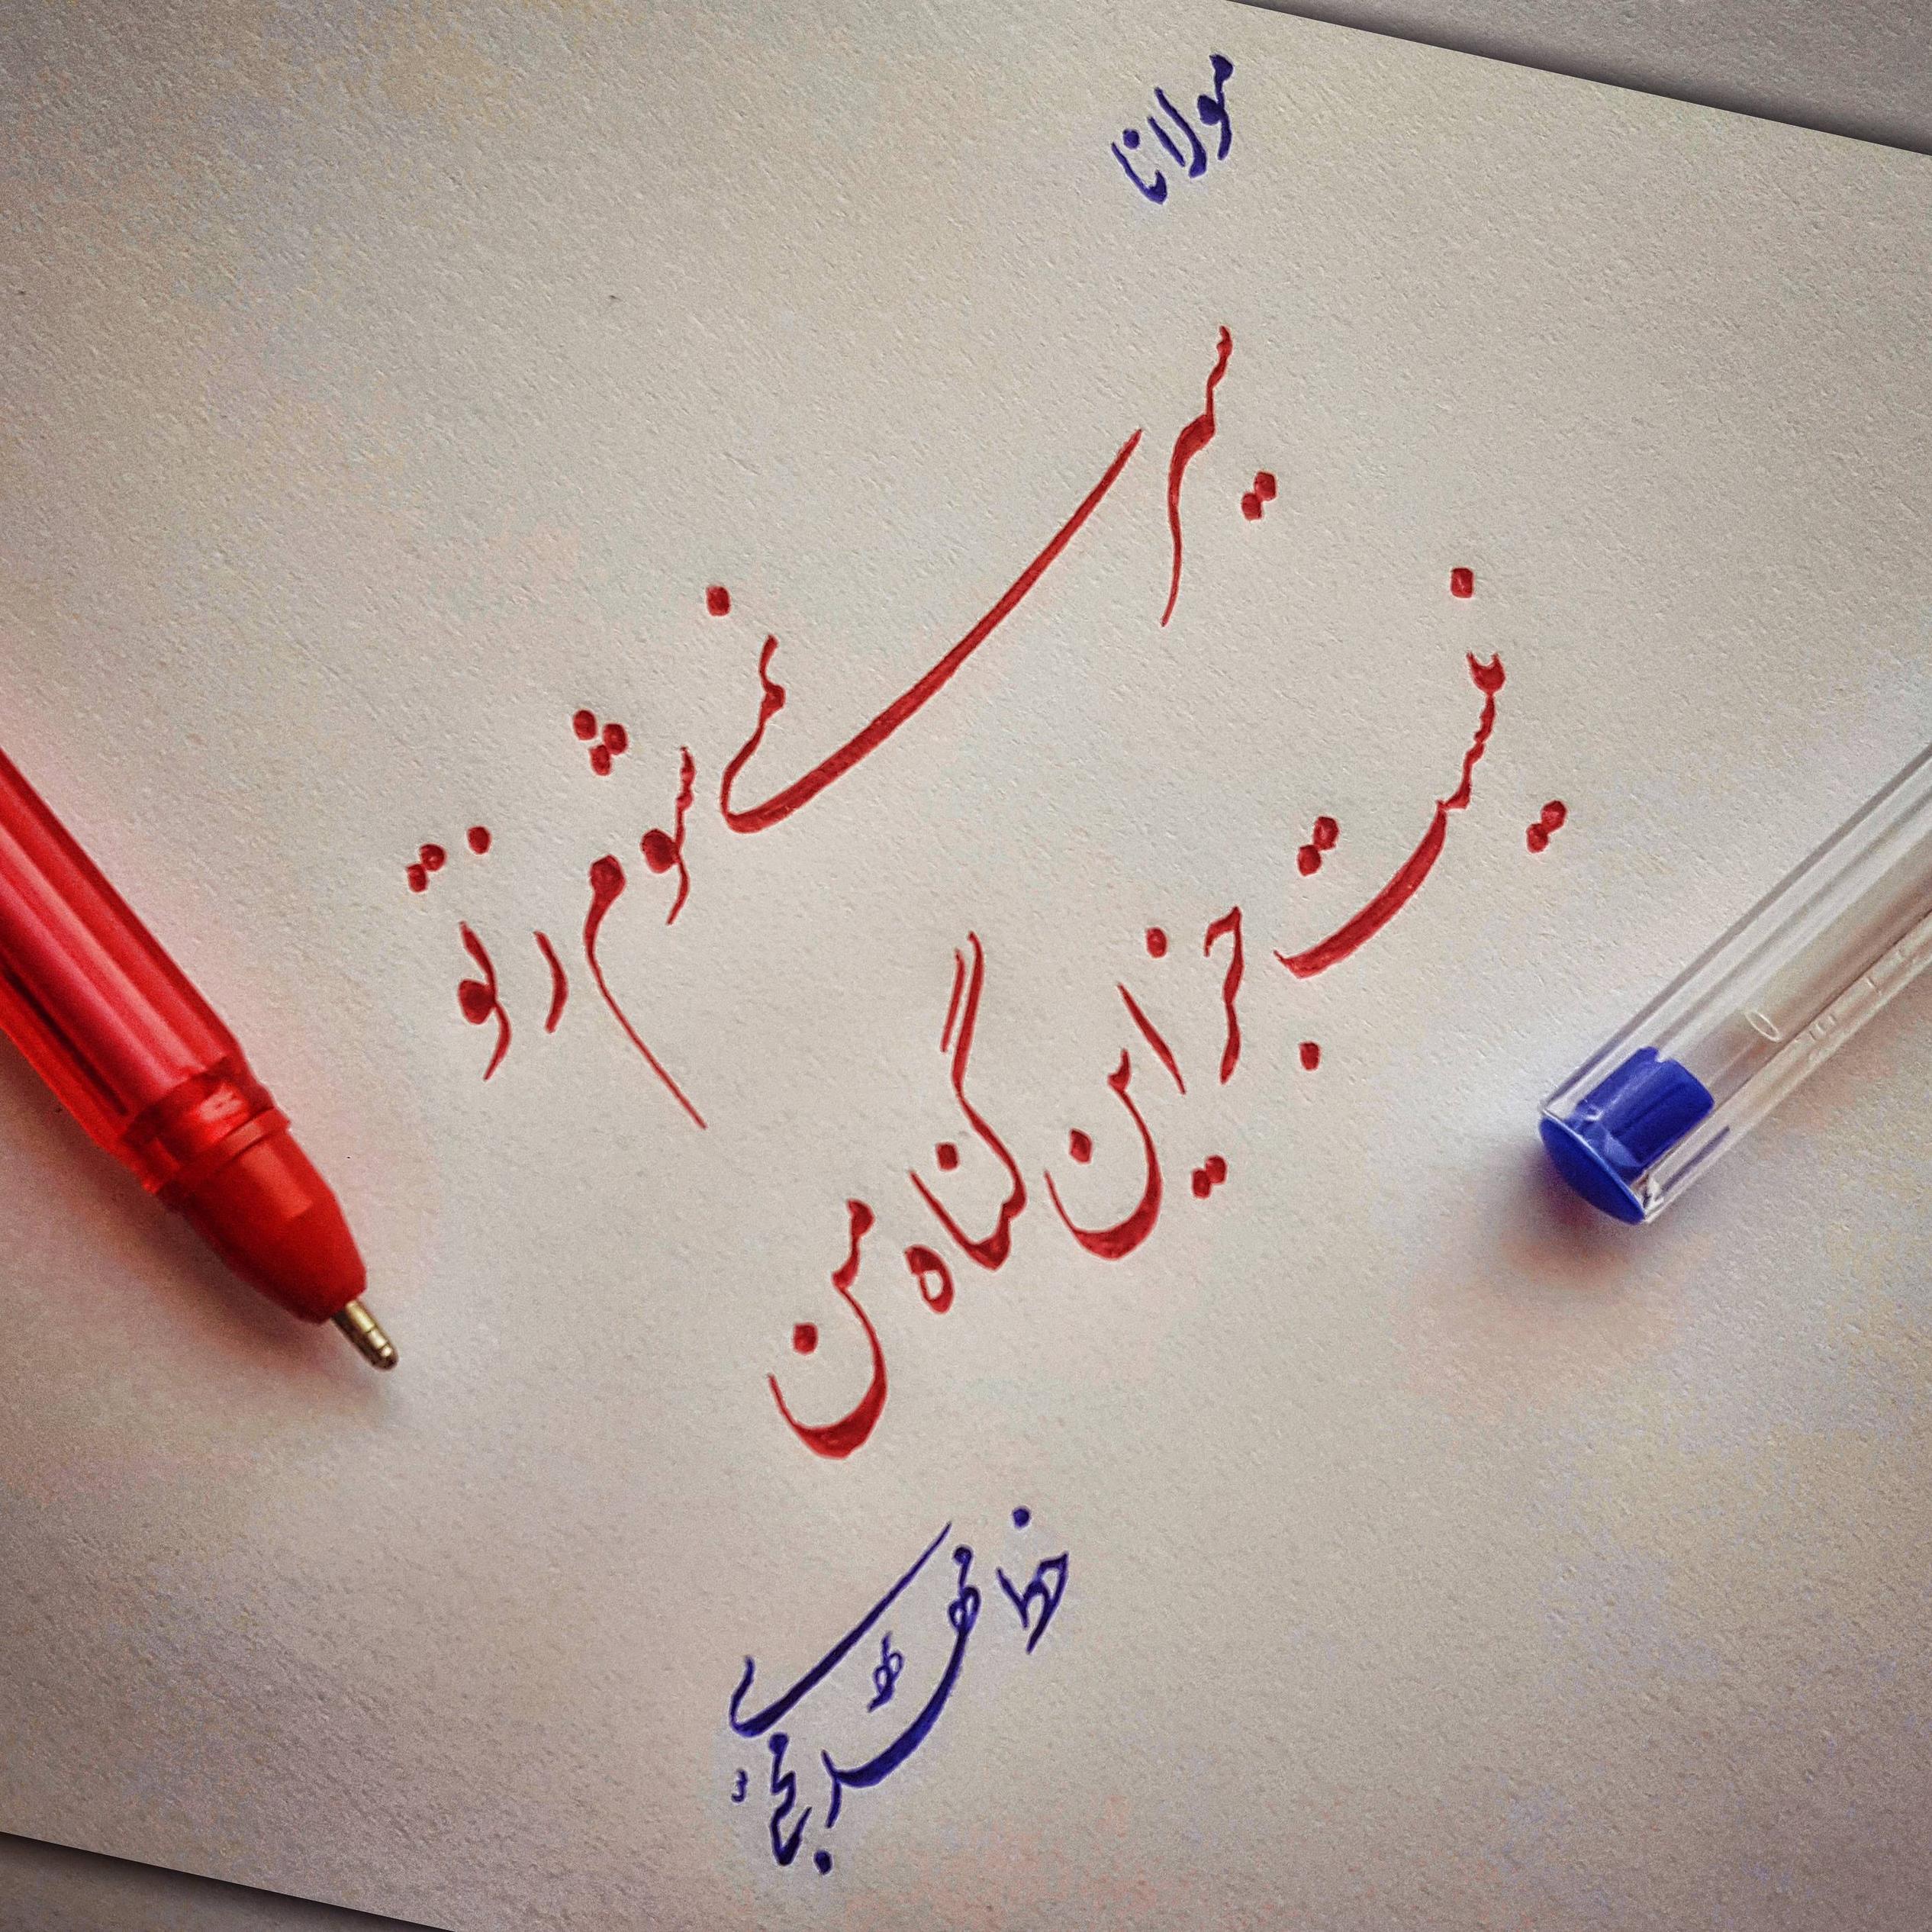 مولانا
سیر نمی شوم ز تو
نیست جز این گناه من
خط